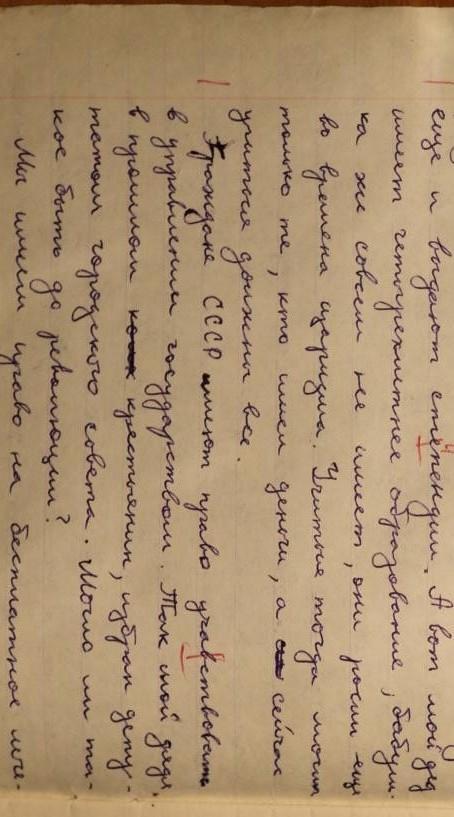 еще и выдают степендии. А вот мой дед
имеет четырехлетнее образование, бабуш-
ка же совсем не имеет, они росли еще
во времена царизма. Учиться тогда могли
только те, кто имел деньги, а сейчас
учиться должны все.
Граждане СССР имеют право учавствовать
в управлении государством. Так мой дядя,
в прошлом крестьянин, избран депу-
татом городского совета. Могло ли та-
кое быть до революции?
Мы имеем право на бесплатное лече-